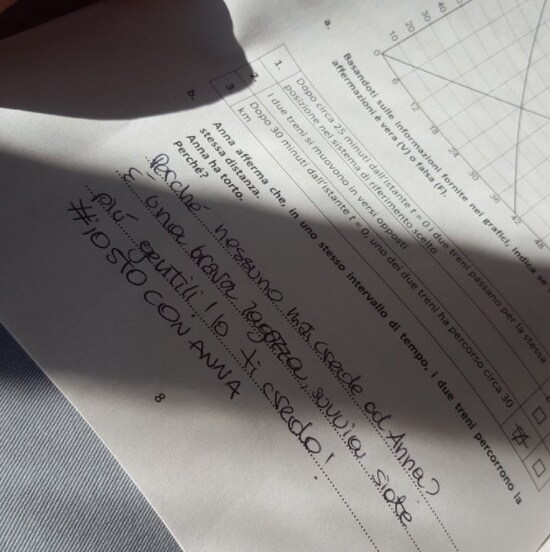 40
30
20
10
0
6
12
18
24
30
36
42
48
a.
Basandoti sulle informazioni fornite nei grafici, indica se
affermazioni è vera (V) o falsa (F).
1. Dopo circa 25 minuti dall'istante t = 0 i due treni passano per la stessa
posizione nel sistema di riferimento scelto
2. I due treni si muovono in versi opposti
3. Dopo 30 minuti dall'istante t = 0, uno dei due treni ha percorso circa 30
km
b.
Anna afferma che, in uno stesso intervallo di tempo, i due treni percorrono la
stessa distanza.
Anna ha torto.
Perché?
Perché nessuno mai crede ad Anna?
È una brava ragazza, suvvia, siate
più gentili! Io ti credo!
#IOSTOCONANNA
8